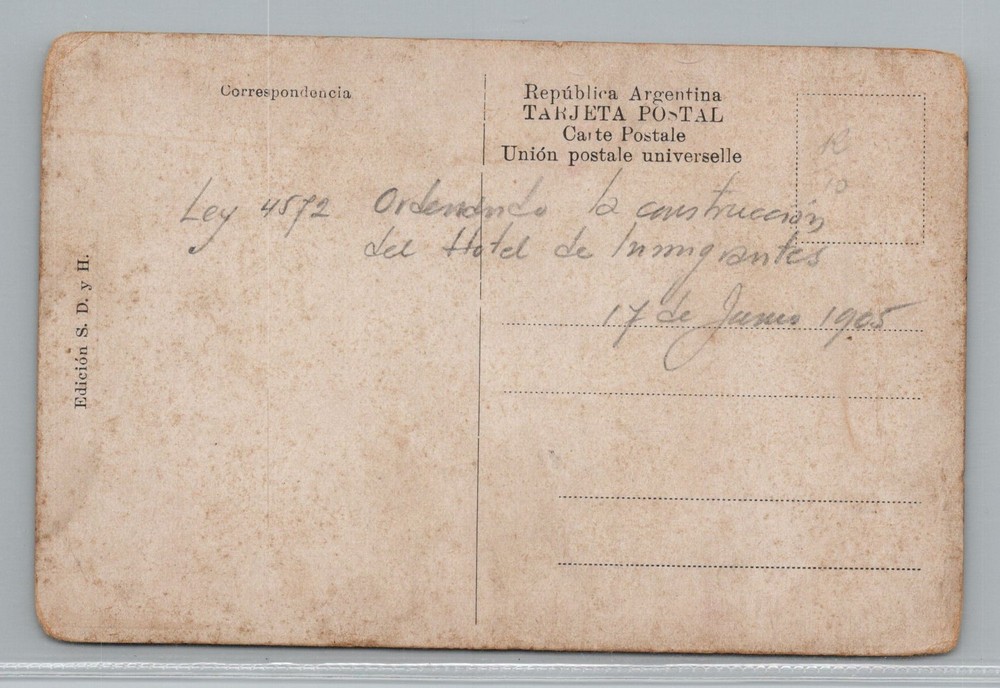 Correspondencia
República Argentina
TARJETA POSTAL
Carte Postale
Unión postale universelle
Ley 4572 Ordenando la construcción
del Hotel de Inmigrantes
17 de Junio 1905
Edición S. D. y H.